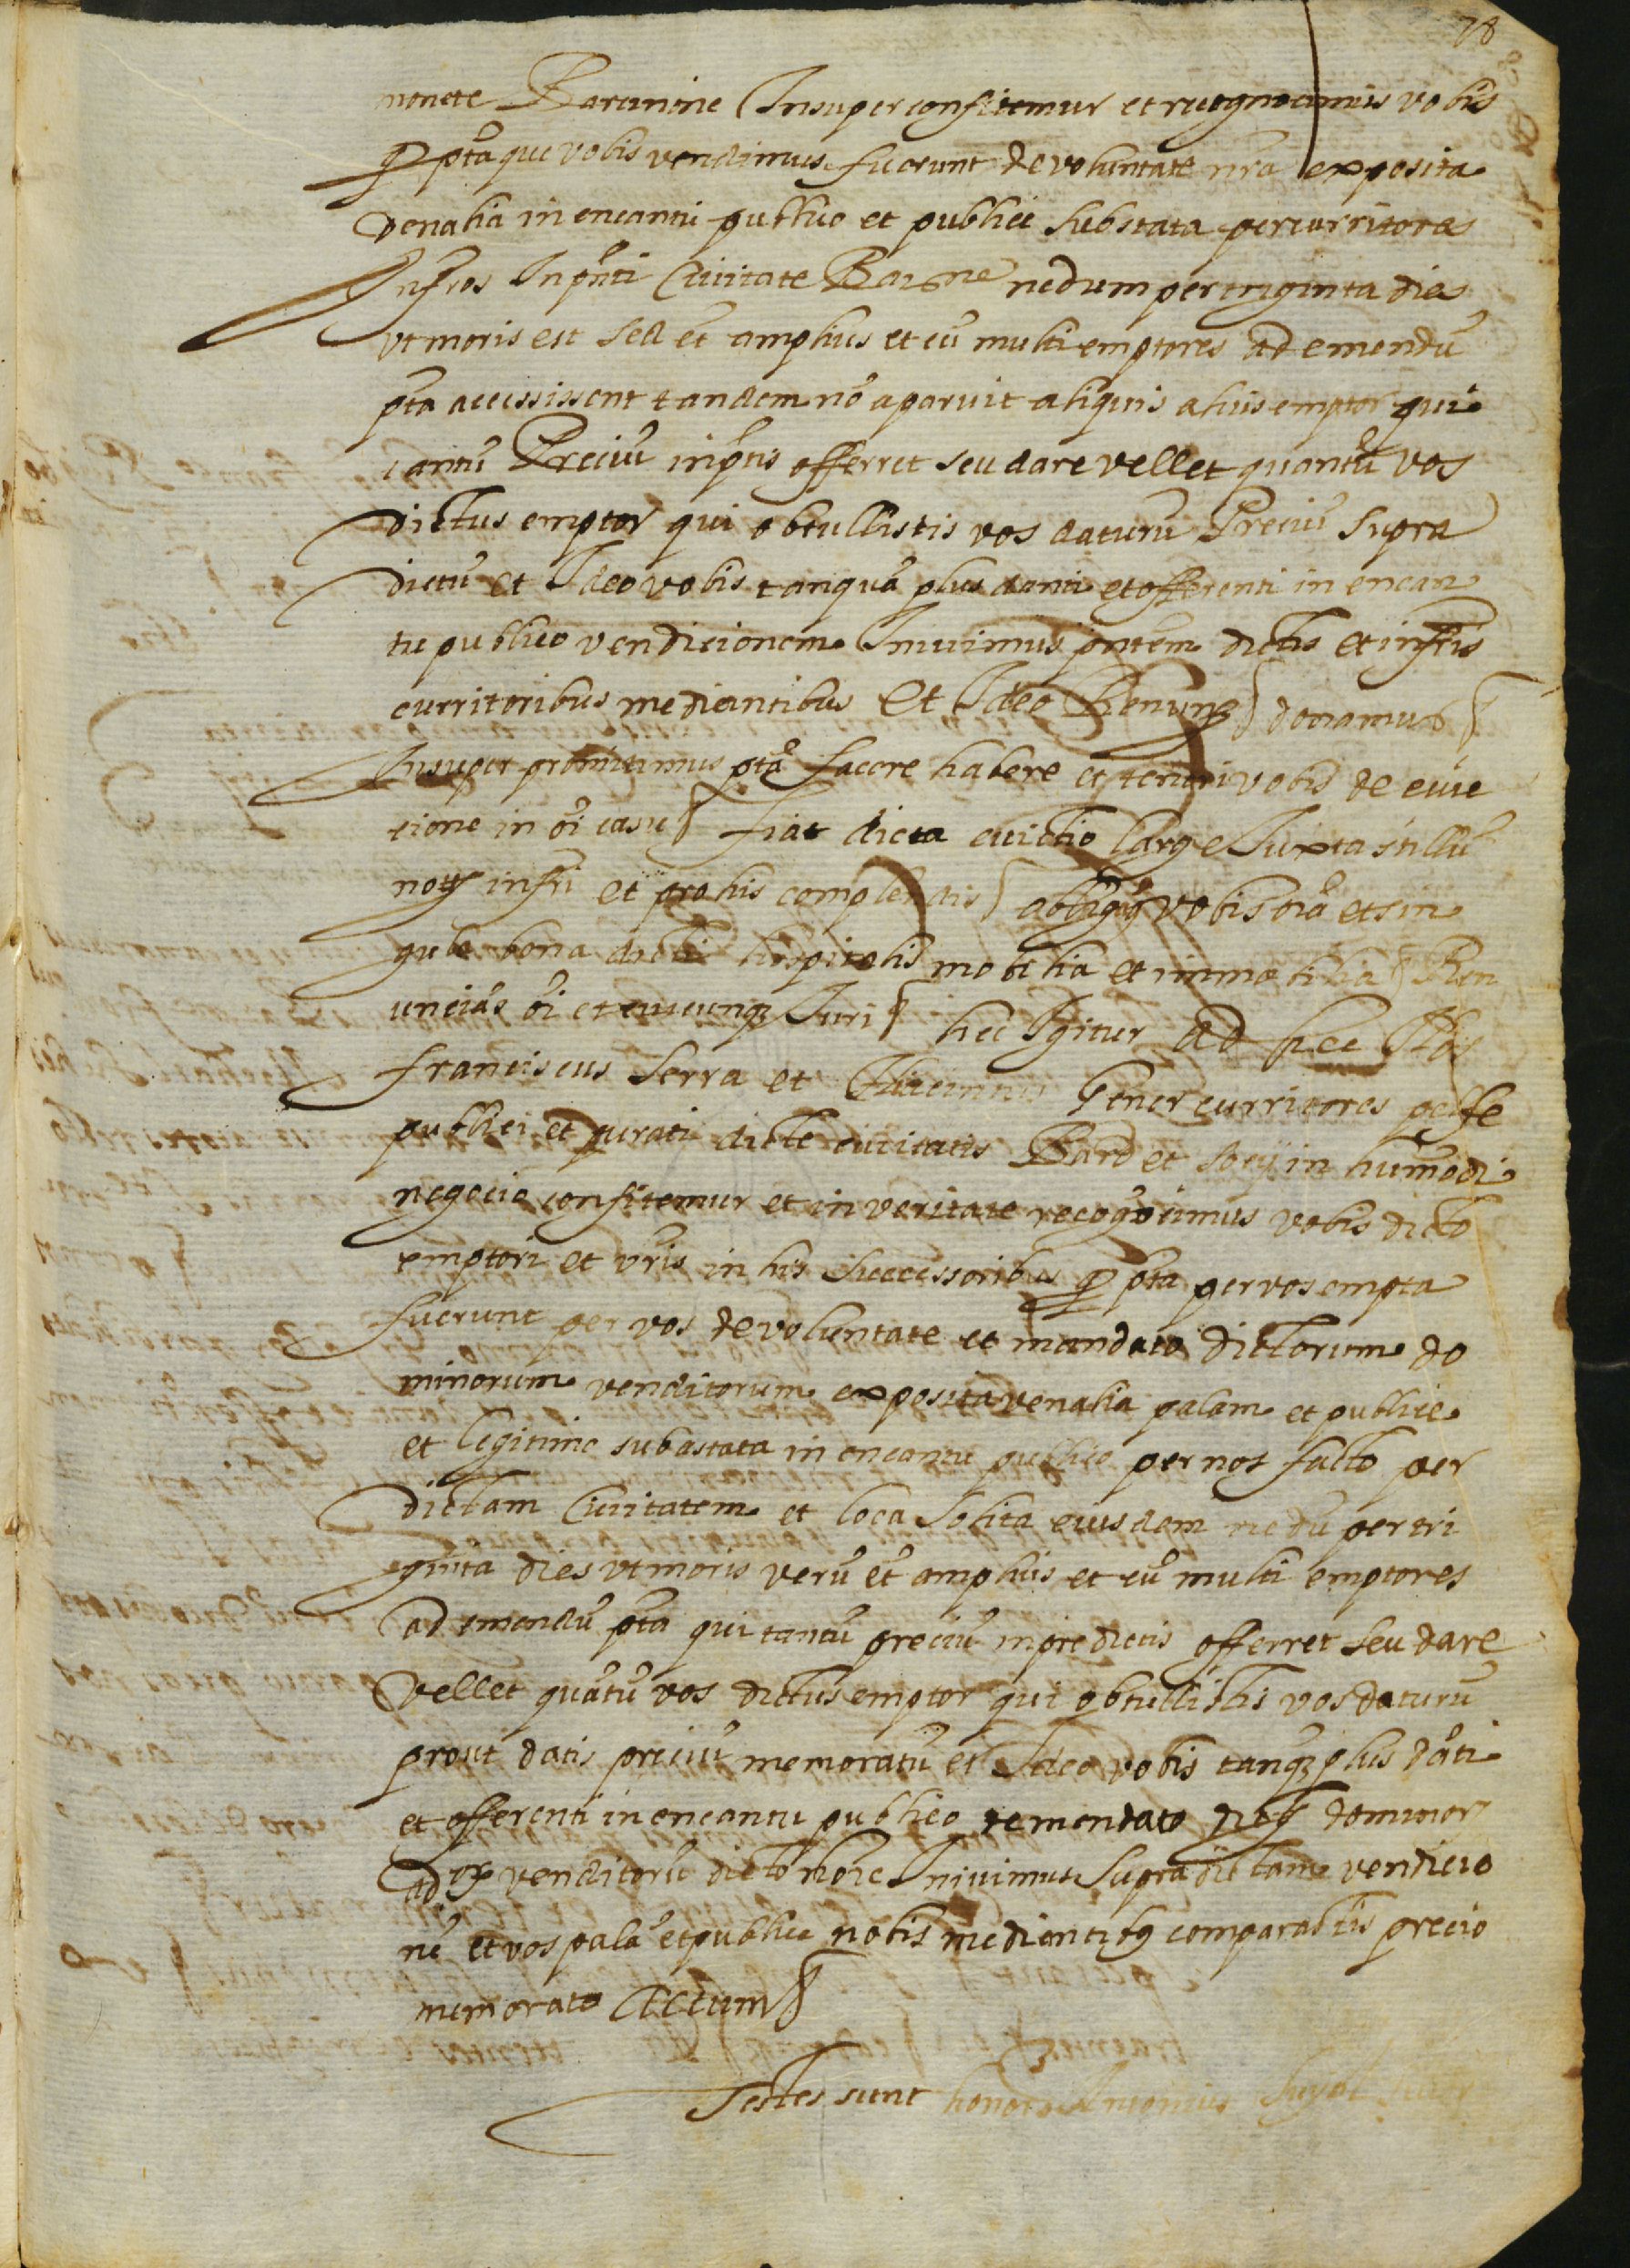 78
monete Barcinone Insuper confitemur et recognoscimus vobis
q̄ pta que vobis vendimus fuerunt de voluntate nrā exposita
venalia in encantu publico et publice substata per curritores
Infros In pnti Civitate Barne nedum per triginta dies
ut moris est sed et amplius et cū multi emptores ad emendū
pta accessissent tandem nō aparuit aliquis alius emptor qui
tantū Preciū in ptis offerret seu dare vellet quantū vos
dictus emptor qui obtullistis vos daturū Preciū supra
dictū et Ideo vobis tanquā plus danti et offerenti in encan
tu publico vendicionem Inivimus pntem dictis et infris
curritoribus mediantibus Et Ideo Renunq donamus
Insuper promittimus pta facere habere et teneri vobis de evic
tione in oi casu fiat dicta evictio large Iuxta stillū
noty infri et pro his complendis obligaq vobis oia et sin
gula bona dicti hospitalis mobilia et immobilia Ren
uncias oi et cuicunq Iuri hec Igitur ad hec Nos
franciscus Serra et Gener curritores
publici et jurati dicte civitatis Barc et socij in humōdi
negocio confitemur et in veritate recognoscimus vobis dicto
emptori et vris in his successoribus q̄ pta per vos empta
fuerunt per vos de voluntate et mandato dictorum do
minorum venditorum exposita venalia palam et publice
et legitime subastata in encantu publico per nos facto per
dictam Civitatem et loca solita eiusdem nedū per tri
ginta dies ut moris verū et amplius et cū multi emptores
ad emendū pta qui tantū preciū in predictis offerret seu dare
vellet quātū vos dictus emptor qui obtullistis vos daturū
prout datis preciū memoratū et Ideo vobis tanq plus dāti
et offerenti in encantu publico de mandato dominor
venditorū dicto noīe Inivimus supra dictam vendicio
nē et vos palā et publice nobis mediantibq comparastis precio
memorato Actum
Testes sunt honor Antonius